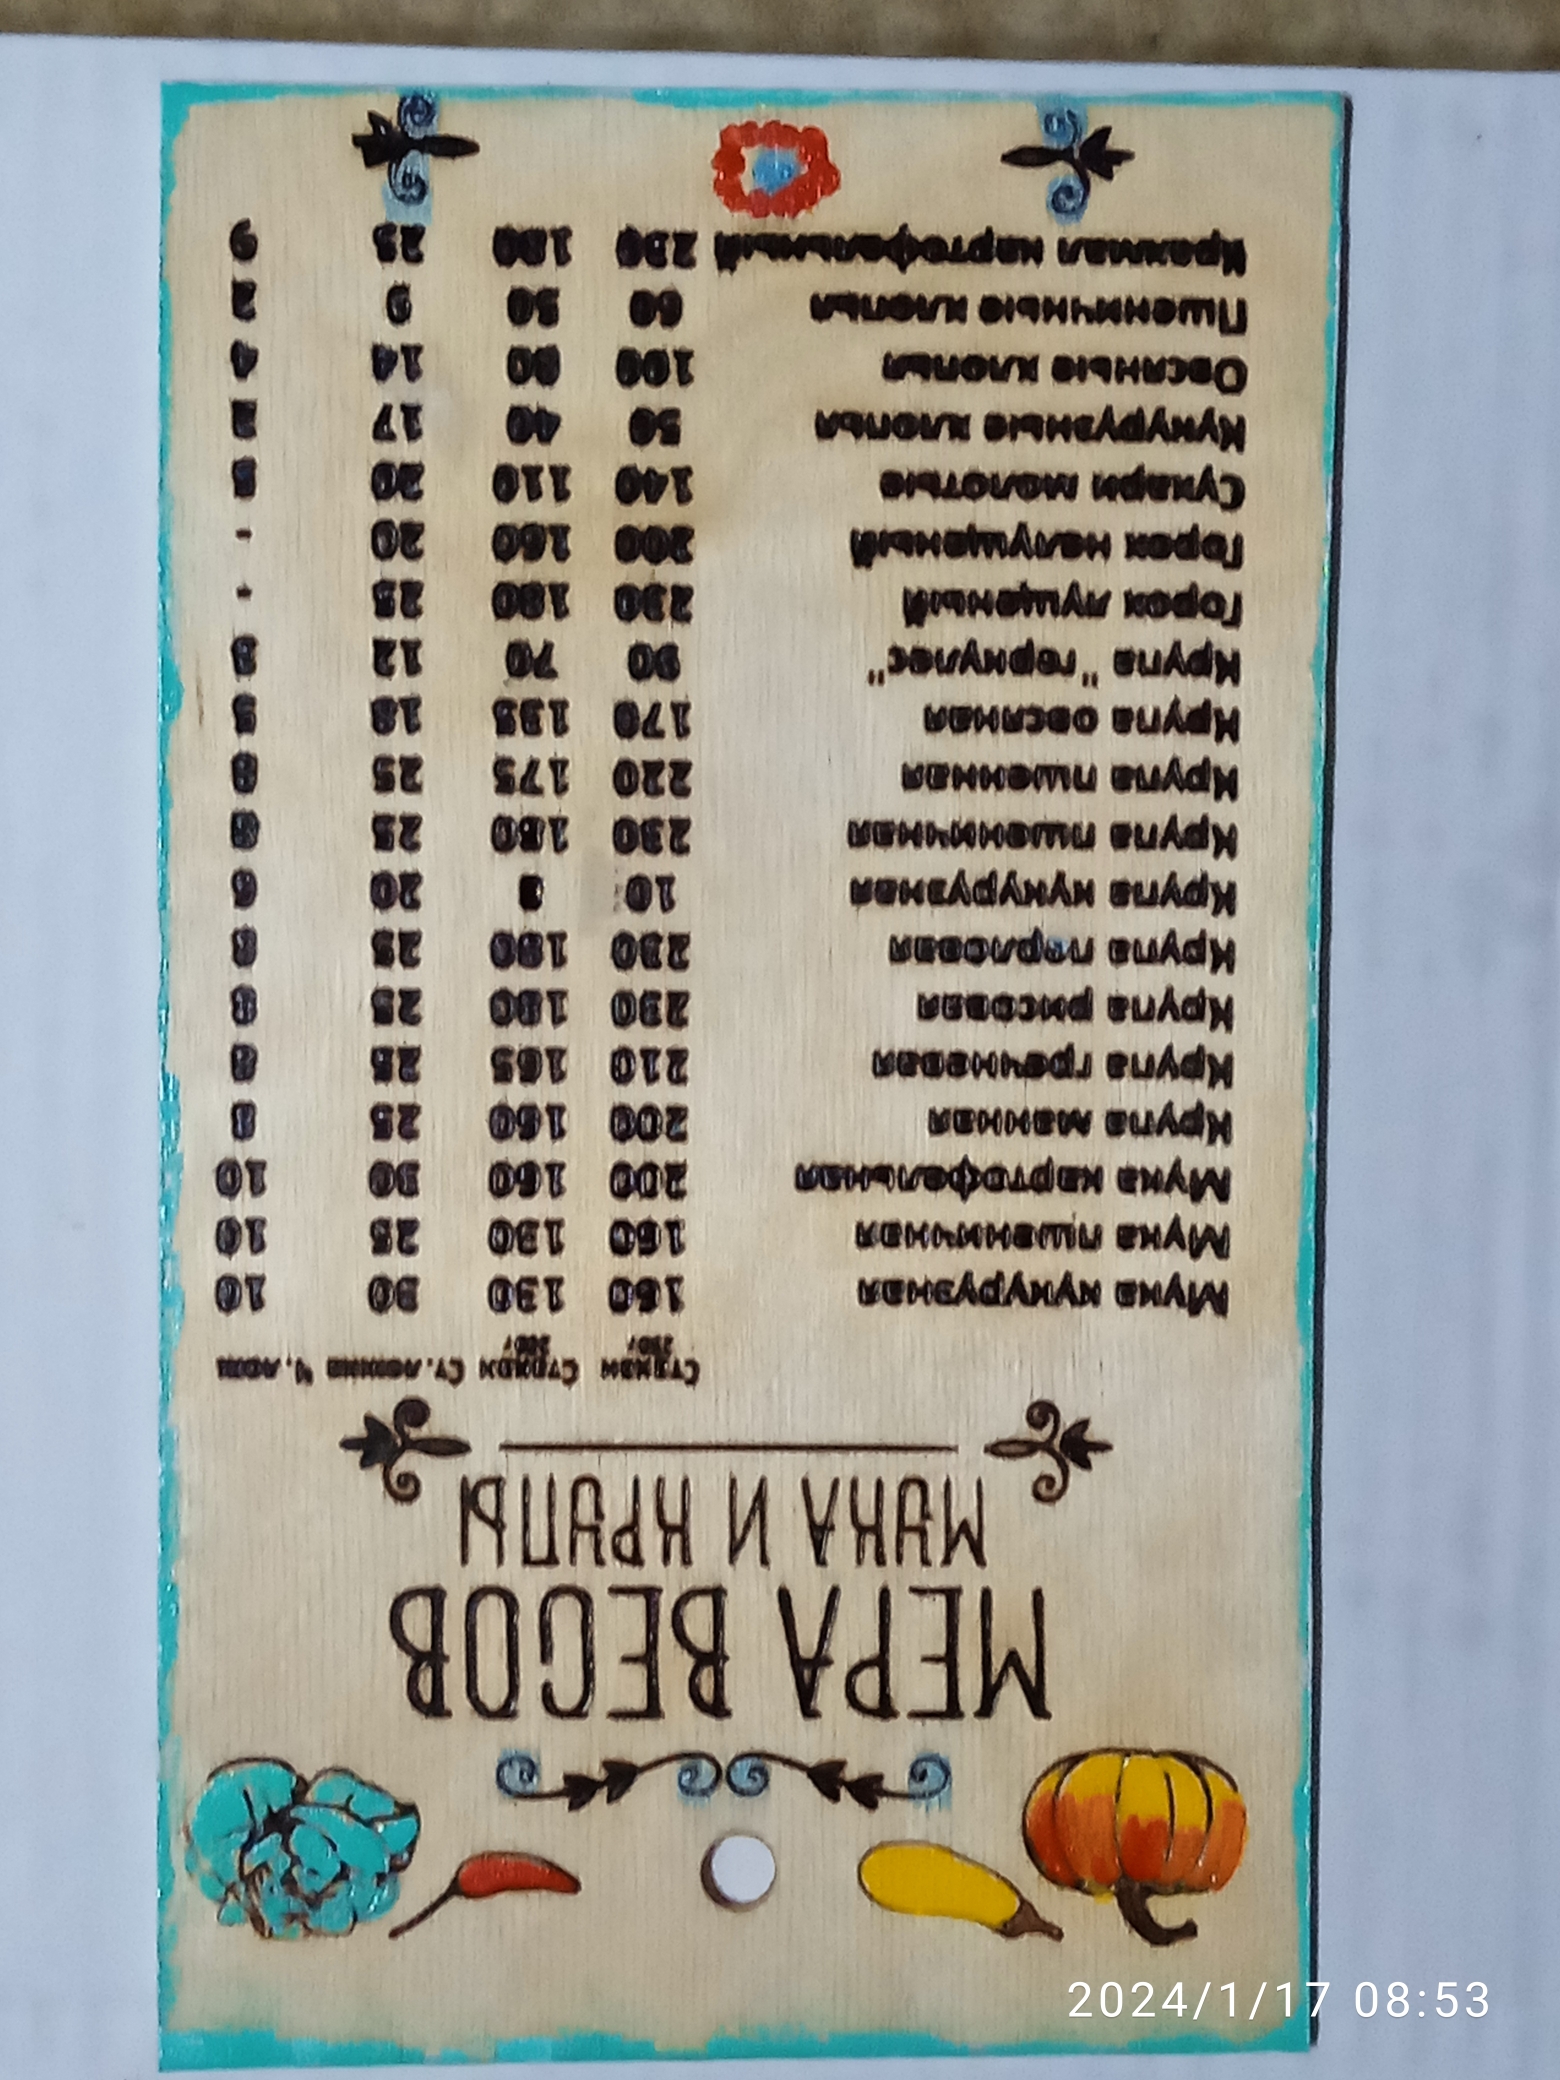 МЕРА ВЕСОВ
МУКА И КРУПЫ
Стакан Стакан Ст. ложка Ч. лож
250г 200г
Мука кукурузная 160 130 30 10
Мука пшеничная 160 130 25 10
Мука картофельная 200 160 30 10
Крупа манная 200 160 25 8
Крупа гречневая 210 165 25 8
Крупа рисовая 230 180 25 8
Крупа перловая 230 180 25 8
Крупа кукурузная 10 20 6
Крупа пшеничная 230 180 25 8
Крупа пшенная 220 175 25 8
Крупа овсяная 170 135 18 5
Крупа "геркулес" 90 70 12 3
Горох лущеный 230 180 25 -
Горох нелущеный 200 160 20 -
Сухари молотые 140 110 20 5
Кукурузные хлопья 50 40 17 2
Овсяные хлопья 100 80 14 4
Пшеничные хлопья 60 50 9 2
Крахмал картофельный 230 180 25 9
2024/1/17 08:53